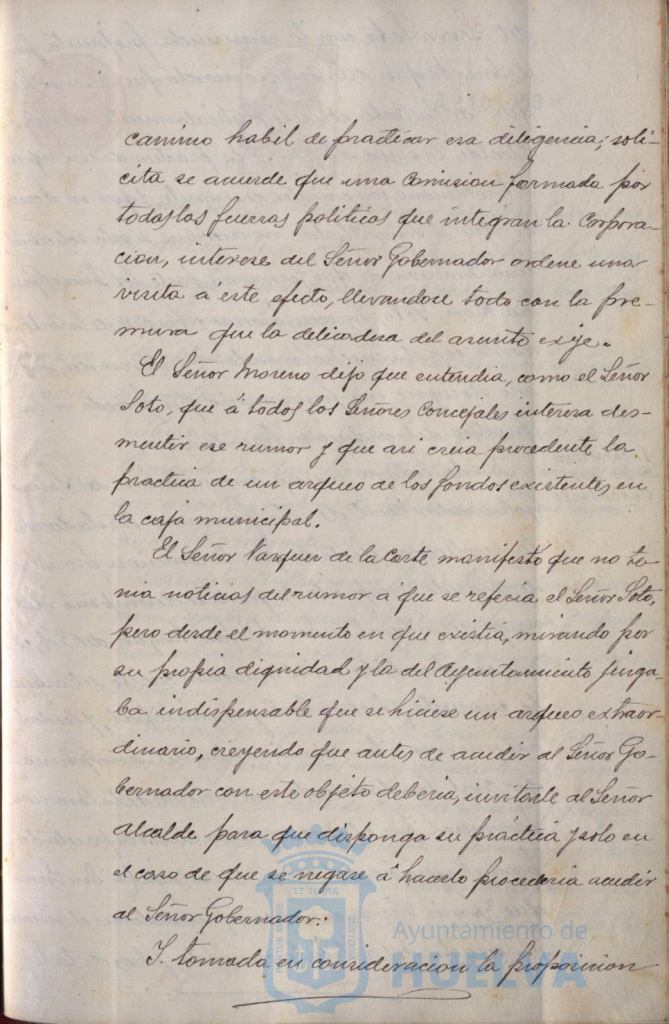 camino habil de practicar esa diligencia; soli-
cita se acuerde que una Comision formada por
todas las fuerzas politicas que integran la Corpora-
cion, interese del Señor Gobernador ordene una
visita á este efecto, llevandose todo con la pre-
mura que la delicadesa del asunto exije.
El Señor Moreno dijo que entendia, como el Señor
Soto, que á todos los Señores Concejales interesa des-
mentir ese rumor y que asi creia procedente la
practica de un arqueo de los fondos existentes en
la caja municipal.
El Señor Vazquez de la Corte manifestó que no te-
nia noticias del rumor á que se referia el Señor Soto,
pero desde el momento en que existia, mirando por
su propia dignidad y la del Ayuntamiento juzga-
ba indispensable que se hiciese un arqueo extraor-
dinario, creyendo que antes de acudir al Señor Go-
bernador con este objeto deberia, invitarle al Señor
Alcalde para que disponga su práctica y solo en
el caso de que se negase á hacerlo procederia acudir
al Señor Gobernador.
Y tomada en consideracion la proposicion
Ayuntamiento de
HUELVA